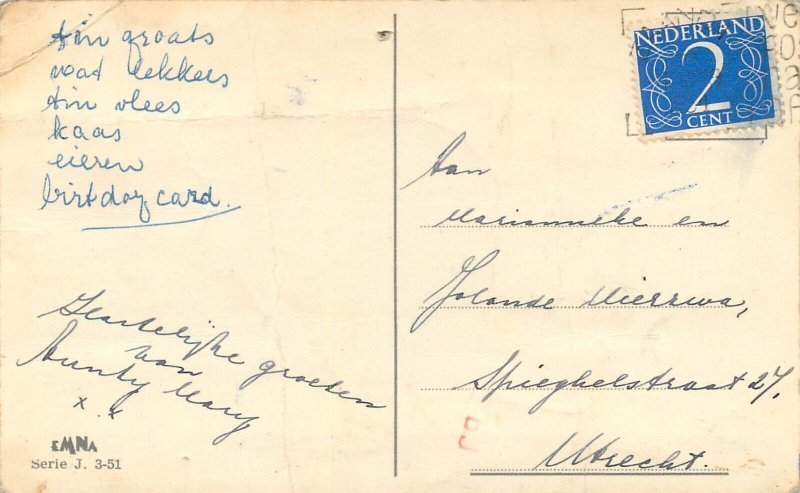 tin groats
wat lekkers
tin vlees
kaas
eieren
birtday card.
Hartelijke groeten
van
Aunty Mary
x x
EMNA
Serie J. 3-51
NEDERLAND
2
CENT
Aan
Marianneke en
Yolande Mierzwa,
Spieghelstraat 27,
Utrecht.